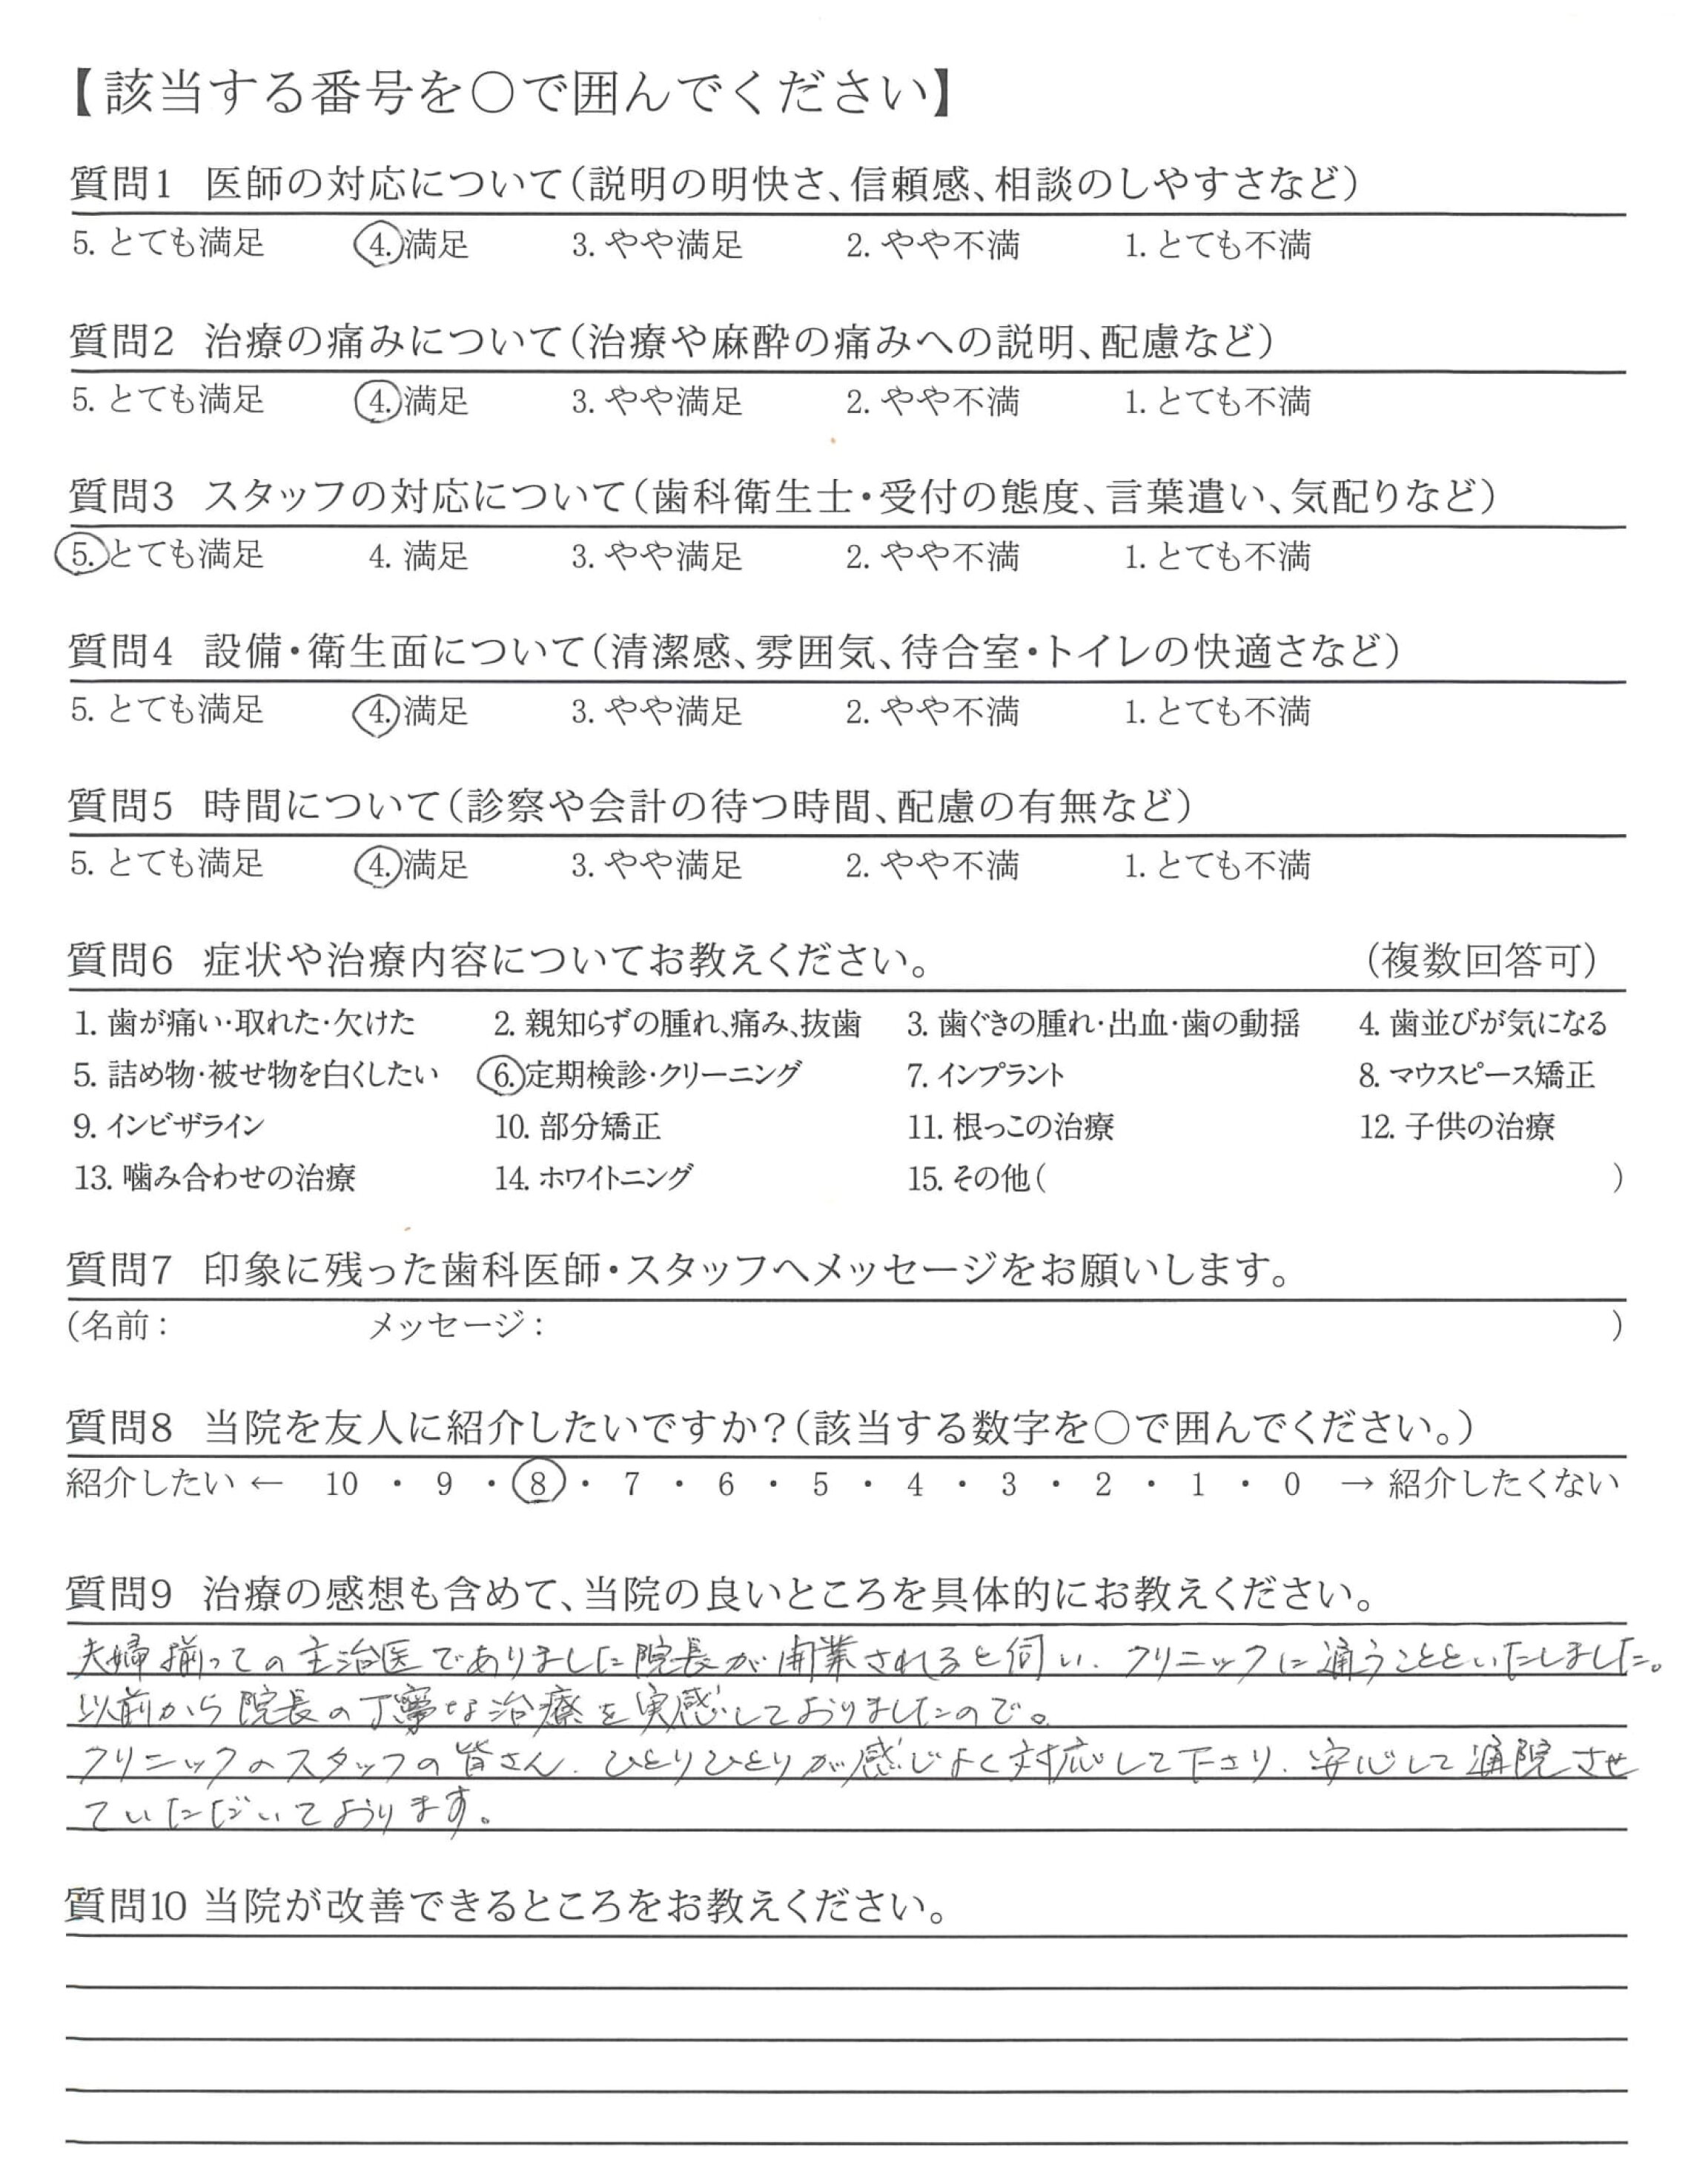 【該当する番号を〇で囲んでください】
質問1 医師の対応について（説明の明快さ、信頼感、相談のしやすさなど）
5. とても満足 4. 満足 3. やや満足 2. やや不満 1. とても不満
質問2 治療の痛みについて（治療や麻酔の痛みへの説明、配慮など）
5. とても満足 4. 満足 3. やや満足 2. やや不満 1. とても不満
質問3 スタッフの対応について（歯科衛生士・受付の態度、言葉遣い、気配りなど）
5. とても満足 4. 満足 3. やや満足 2. やや不満 1. とても不満
質問4 設備・衛生面について（清潔感、雰囲気、待合室・トイレの快適さなど）
5. とても満足 4. 満足 3. やや満足 2. やや不満 1. とても不満
質問5 時間について（診察や会計の待つ時間、配慮の有無など）
5. とても満足 4. 満足 3. やや満足 2. やや不満 1. とても不満
質問6 症状や治療内容についてお教えください。 （複数回答可）
1. 歯が痛い・取れた・欠けた 2. 親知らずの腫れ、痛み、抜歯 3. 歯ぐきの腫れ・出血・歯の動揺 4. 歯並びが気になる
5. 詰め物・被せ物を白くしたい 6. 定期検診・クリーニング 7. インプラント 8. マウスピース矯正
9. インビザライン 10. 部分矯正 11. 根っこの治療 12. 子供の治療
13. 噛み合わせの治療 14. ホワイトニング 15. その他（ ）
質問7 印象に残った歯科医師・スタッフへメッセージをお願いします。
（名前： メッセージ： ）
質問8 当院を友人に紹介したいですか？（該当する数字を〇で囲んでください。）
紹介したい ← 10 ・ 9 ・ 8 ・ 7 ・ 6 ・ 5 ・ 4 ・ 3 ・ 2 ・ 1 ・ 0 → 紹介したくない
質問9 治療の感想も含めて、当院の良いところを具体的にお教えください。
夫婦揃っての主治医でありました院長が開業されると伺い、クリニックに通うことといたしました。
以前から院長の丁寧な治療を実感しておりましたので。
クリニックのスタッフの皆さん、ひとりひとりが感じよく対応して下さり、安心して通院させ
ていただいております。
質問10 当院が改善できるところをお教えください。